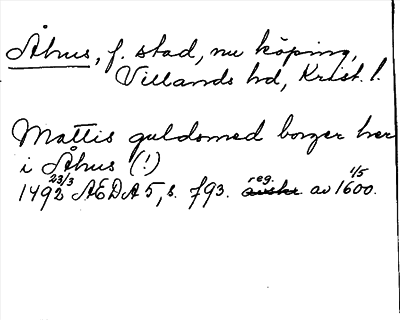 Åhus, f. stad, nu köping,
Villands hd, Krist. l.
Mattis guldsmed borger her
i Åhus (!)
1492 23/3 ÆDA 5, s. f93. reg. av 1600. 1/5